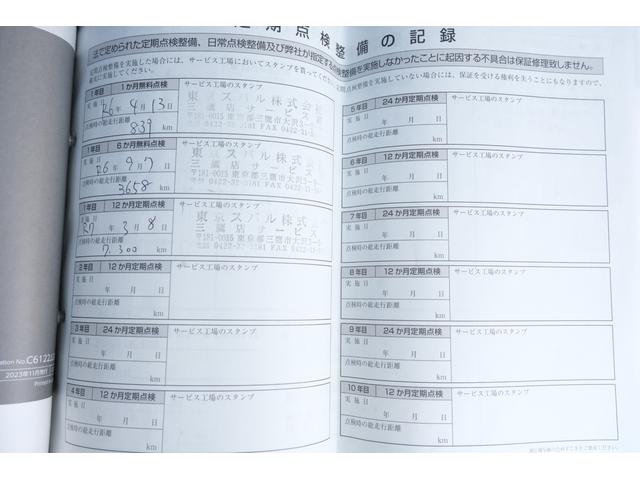 定期点検整備の記録
法で定められた定期点検整備、日常点検整備及び弊社が指定する点検整備を実施しなかったことに起因する不具合は保証修理致しません。
定期点検整備を実施した場合には、サービス工場においてスタンプを貰ってください。定期点検整備を実施していない場合には、保証を受ける権利を失うこともありますので、
確実に実施してください。
1年目 1か月無料点検 サービス工場のスタンプ
実施日
R6年 4月 13日
点検時の総走行距離
839 km
東京スバル株式会社
三鷹店サービス
〒181-0015 東京都三鷹市大沢3-
1年目 6か月無料点検 サービス工場のスタンプ
実施日
R6年 9月 7日
点検時の総走行距離
3658 km
東京スバル株式会社
三鷹店サービス
〒181-0015 東京都三鷹市大沢3-
1年目 12か月定期点検 サービス工場のスタンプ
実施日
R7年 3月 8日
点検時の総走行距離
7,300 km
東京スバル株式会社
三鷹店サービス
〒181-0015 東京都三鷹市大沢3-
2年目 12か月定期点検 サービス工場のスタンプ
実施日
年 月 日
点検時の総走行距離
km
3年目 24か月定期点検 サービス工場のスタンプ
実施日
年 月 日
点検時の総走行距離
km
4年目 12か月定期点検 サービス工場のスタンプ
実施日
年 月 日
点検時の総走行距離
km
5年目 24か月定期点検 サービス工場のスタンプ
実施日
年 月 日
点検時の総走行距離
km
6年目 12か月定期点検 サービス工場のスタンプ
実施日
年 月 日
点検時の総走行距離
km
7年目 24か月定期点検 サービス工場のスタンプ
実施日
年 月 日
点検時の総走行距離
km
8年目 12か月定期点検 サービス工場のスタンプ
実施日
年 月 日
点検時の総走行距離
km
9年目 24か月定期点検 サービス工場のスタンプ
実施日
年 月 日
点検時の総走行距離
km
10年目 12か月定期点検 サービス工場のスタンプ
実施日
年 月 日
点検時の総走行距離
km
ation No.C6122J
2023年11月発行
Printed